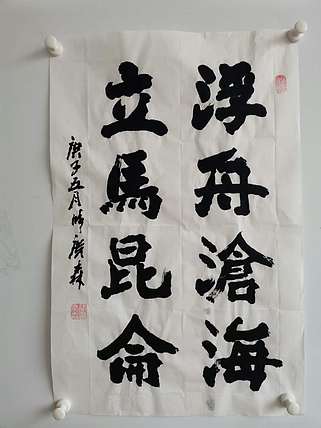 浮舟滄海
立馬昆侖
庚子五月